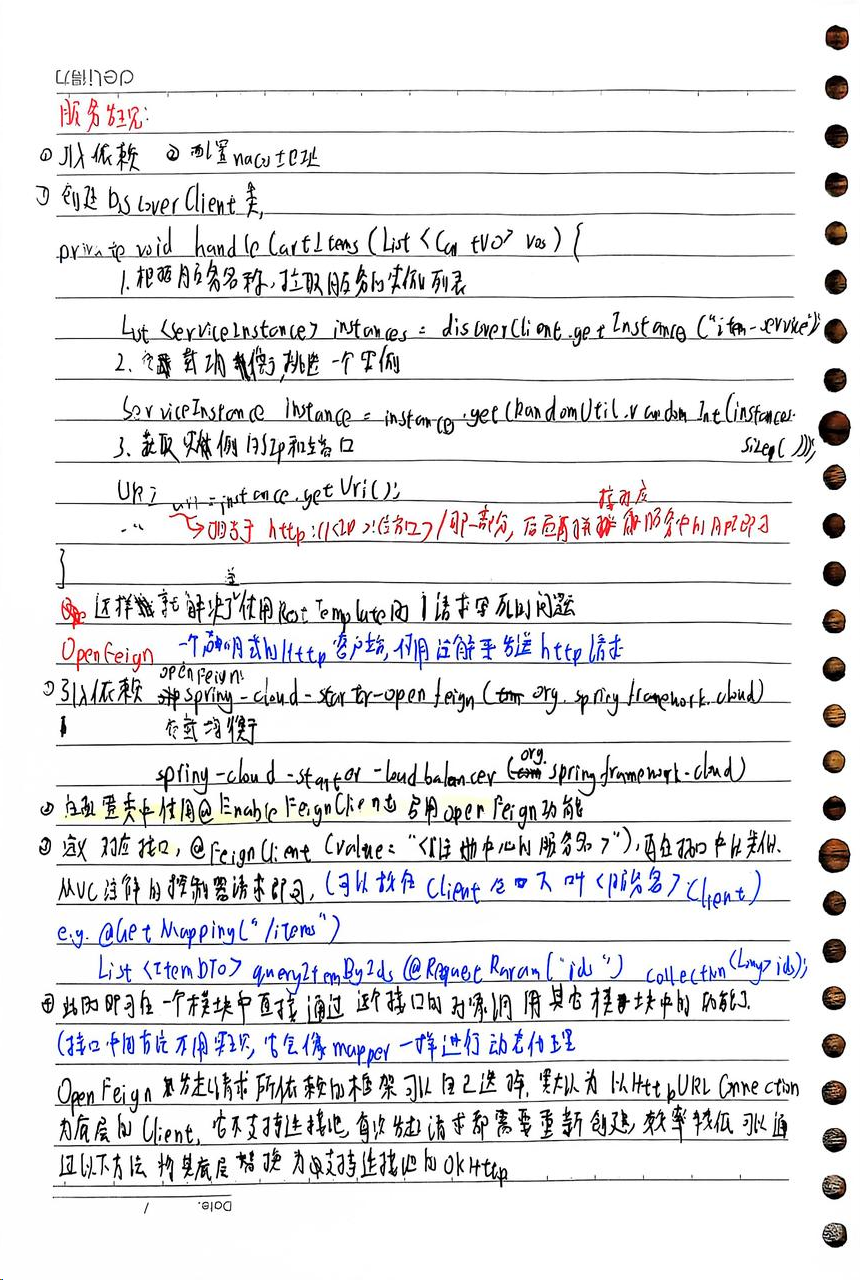 deli得力
服务发现:
① 引入依赖 ② 配置nacos地址
③ 创建DiscoverClient类,
private void handleCartItems (List <CartVO> vos) {
1. 根据服务名称,拉取服务的实例列表
List <ServiceInstance> instances = discoverClient.getInstance ("item-service")
2. 负载均衡,挑选一个实例
ServiceInstance instance = instances.get(RandomUtil.randomInt(instances.
size()));
3. 获取实例的Ip和端口
URI uri = instance.getUri();
接对应
... 相当于 http://<IP>:<端口>/那一部分, 后面再拼服务中的API即可
}
这样就解决了使用RestTemplate时请求写死的问题
OpenFeign 一个声明式的Http客户端,利用注解来发送http请求
① 引入依赖 openFeign: spring-cloud-starter-openfeign (org.springframework.cloud)
负载均衡
spring-cloud-starter-loadbalancer (org.springframework.cloud)
② 在配置类中使用@EnableFeignClients 启用openFeign功能
③ 定义对应接口, @FeignClient (value="<注册中心的服务名>"), 再在接口中写类似
MVC注解的控制器请求即可, (可以放在Client包下 叫<服务名>Client)
e.g. @GetMapping("/items")
List <ItemDTO> queryItemByIds (@RequestParam("ids") Collection<Long> ids);
④ 此时即可在一个模块中直接通过这个接口的对象调用其它模块中的功能了.
(接口中的方法不用实现, 它会像mapper一样进行动态代理
OpenFeign 发起请求所依赖的框架可以自己选择, 默认为以HttpURLConnection
为底层的Client, 它不支持连接池, 每次发起请求都需要重新创建, 效率较低 可以通
过以下方法 将其底层替换为支持连接池的OKHttp
Date. /